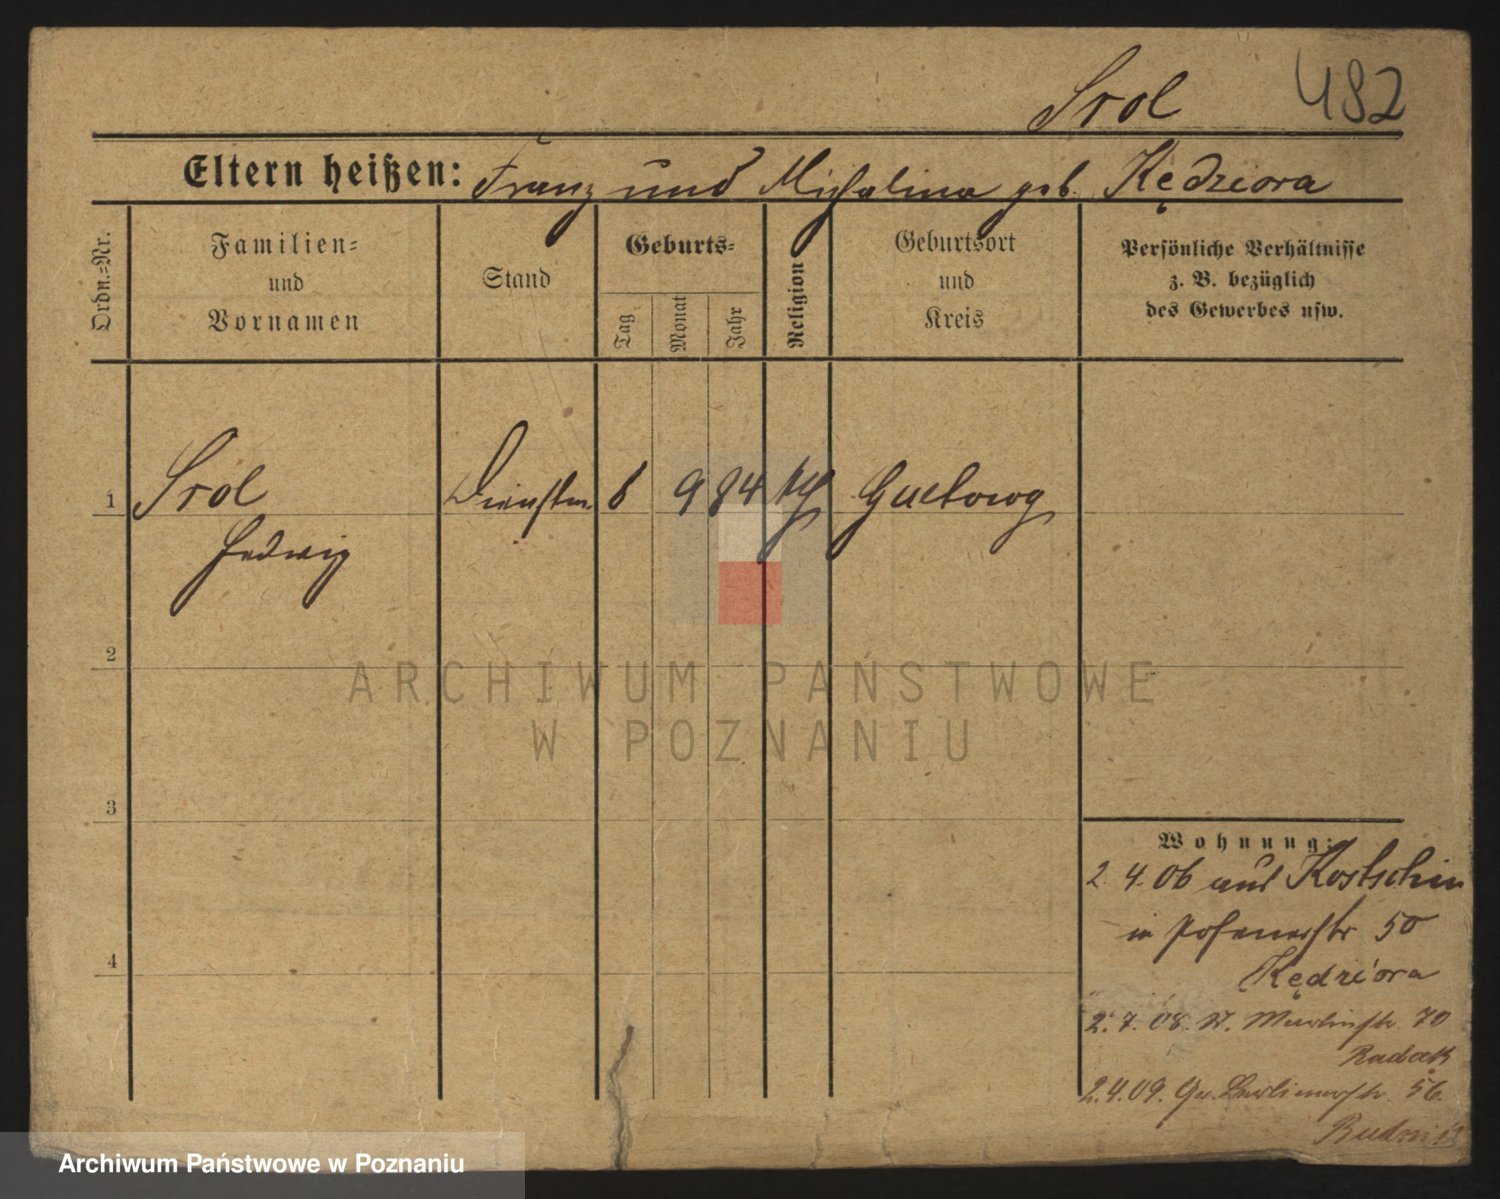 Srol 482
Eltern heißen: Franz und Michalina geb. Kędziora
Ordn.=Nr.
Familien=
und
Vornamen
Stand
Geburts=
Tag
Monat
Jahr
Religion
Geburtsort
und
Kreis
Persönliche Verhältnisse
z. B. bezüglich
des Gewerbes usw.
1 Srol Dienstm. 6 9 84 kth Gultowy
Hedwig
2
3
4
Wohnung:
2. 4. 06 aus Kostschin
in Posenerstr 50
Kędziora
2. 7. 08. St. Martinstr. 70
Radack
2. 4. 09. Gr. Berlinerstr. 56.
ARCHIWUM PAŃSTWOWE
W POZNANIU
Archiwum Państwowe w Poznaniu